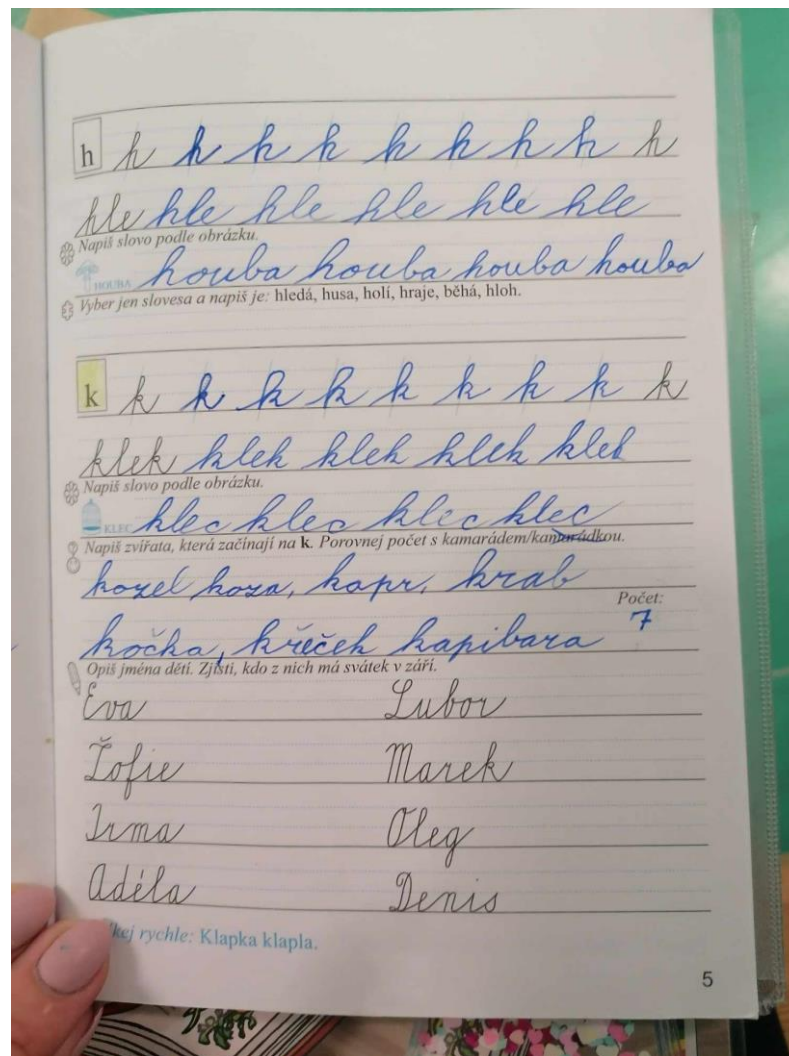 h h h h h h h h h h
hle hle hle hle hle hle
Napiš slovo podle obrázku.
HOUBA houba houba houba houba
Vyber jen slovesa a napiš je: hledá, husa, holí, hraje, běhá, hloh.
k k k k k k k k k k
klek klek klek klek klek
Napiš slovo podle obrázku.
KLEC klec klec klec klec
Napiš zvířata, která začínají na k. Porovnej počet s kamarádem/kamarádkou.
kozel koza, kapr, krab
Počet:
7
kočka, křeček kapibara
Opiš jména dětí. Zjisti, kdo z nich má svátek v září.
Eva Lubor
Žofie Marek
Irma Oleg
Adéla Denis
rychle: Klapka klapla.
5